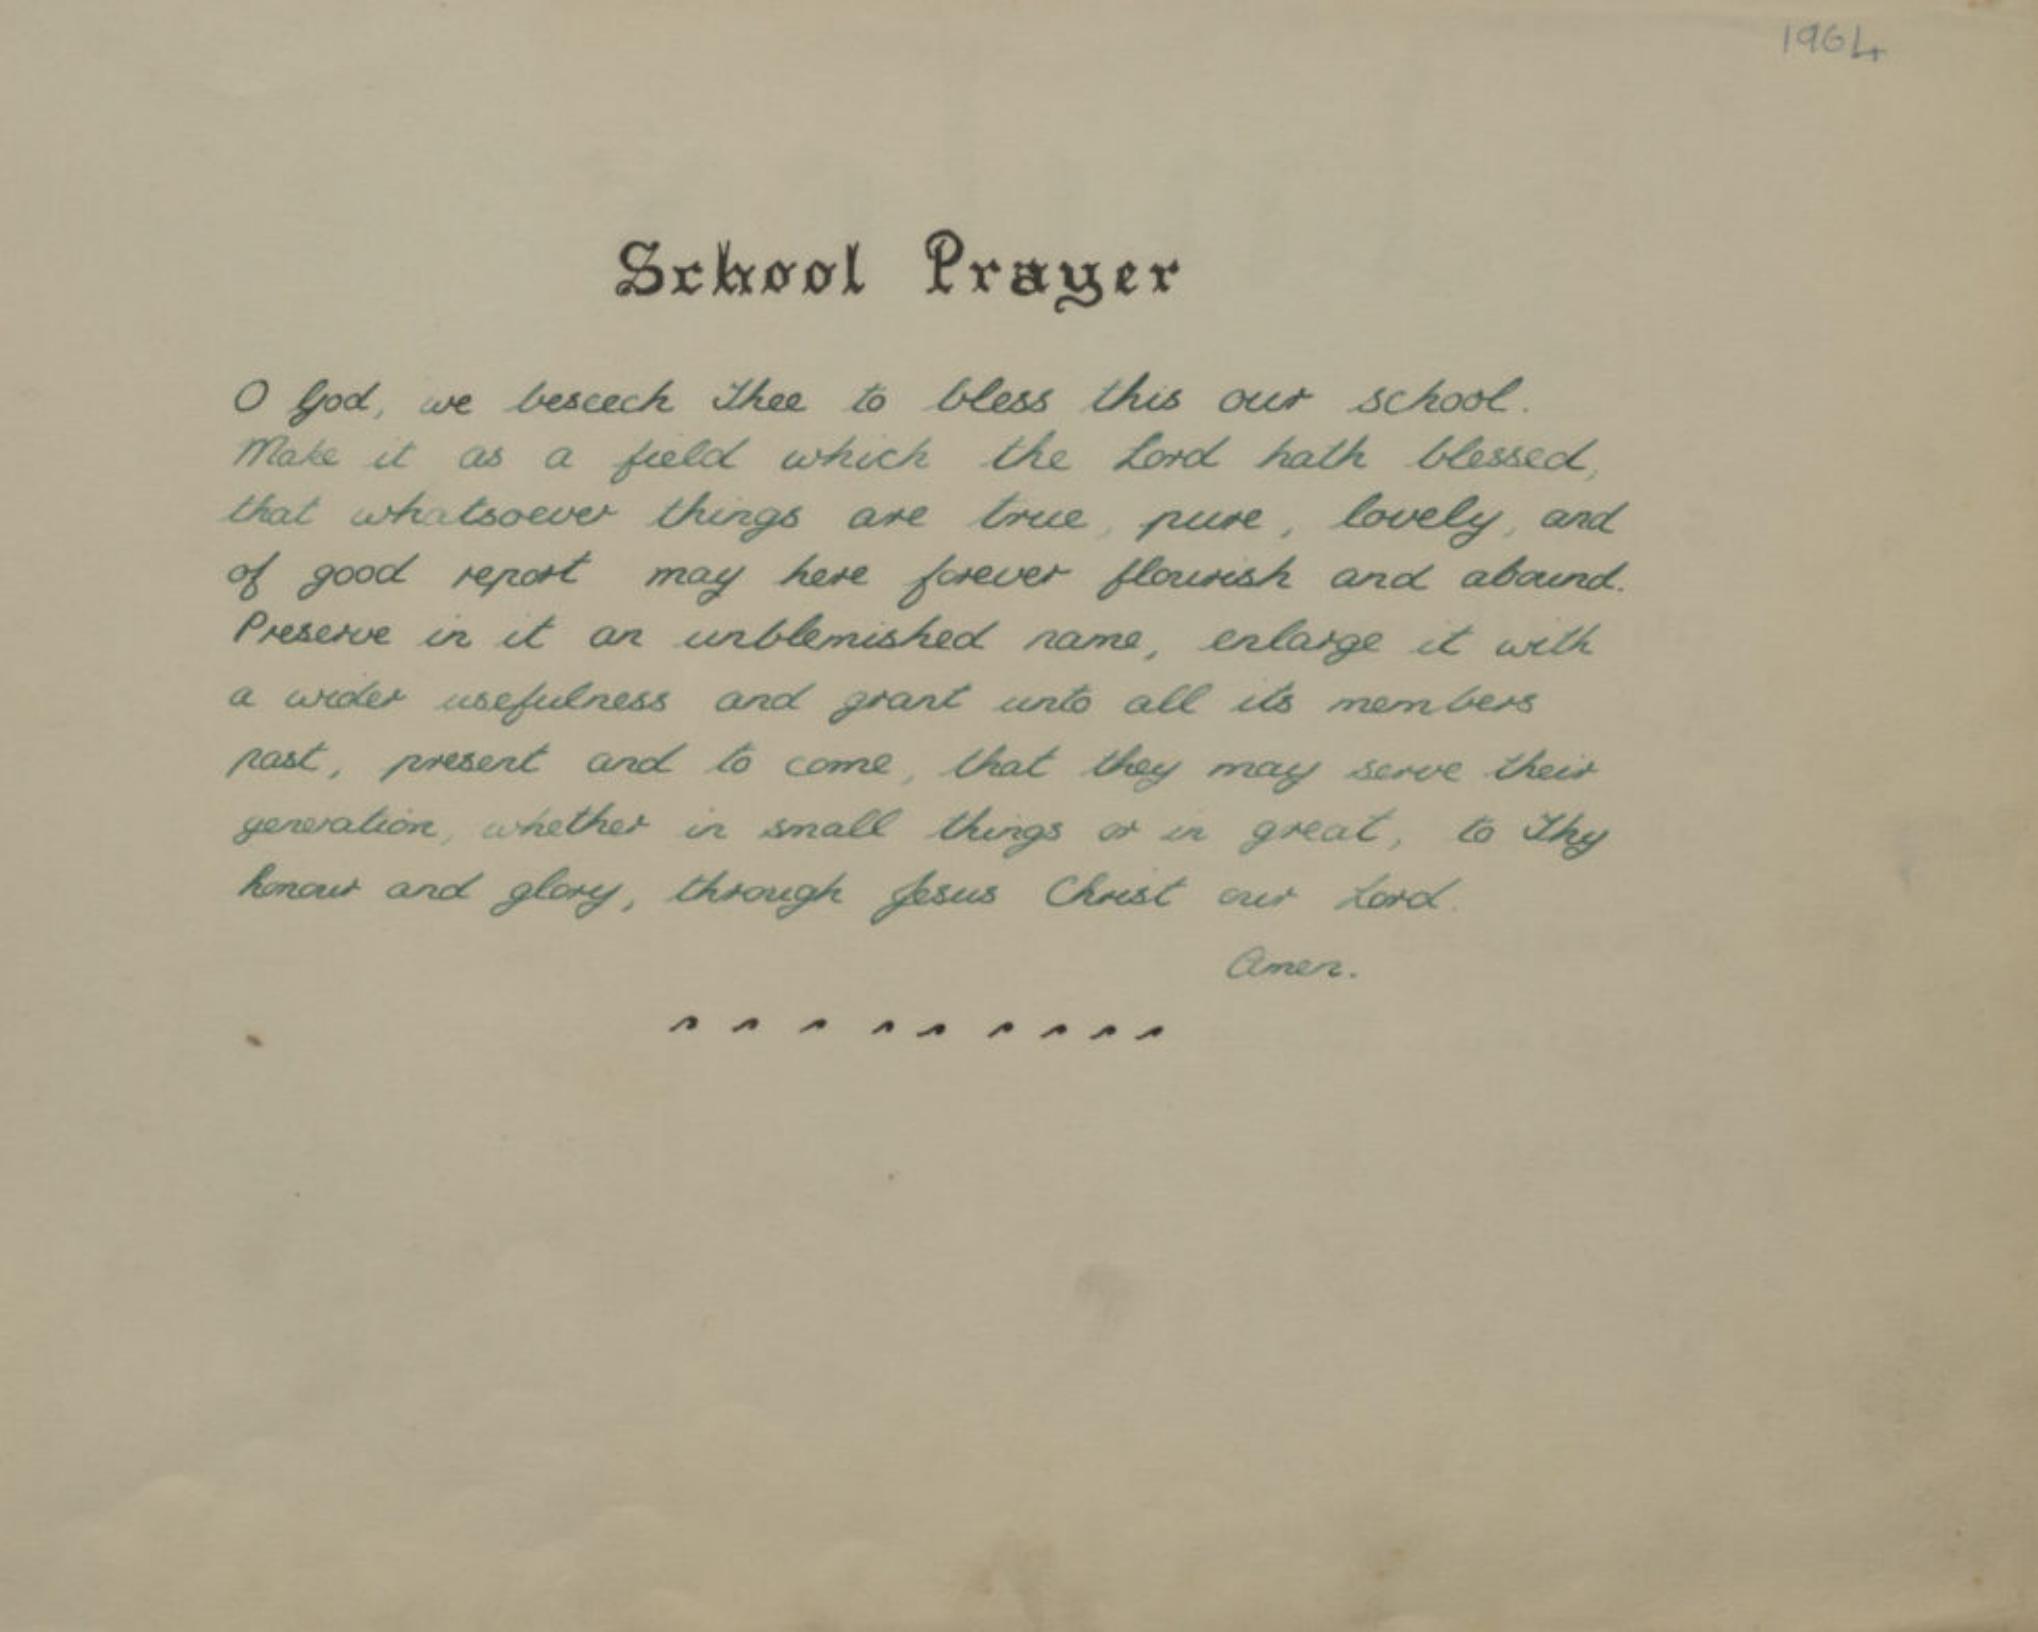 1964
School Prayer
O God, we beseech Thee to bless this our school.
Make it as a field which the Lord hath blessed,
that whatsoever things are true, pure, lovely, and
of good report may here forever flourish and abound.
Preserve in it an unblemished name, enlarge it with
a wider usefulness and grant unto all its members
past, present and to come, that they may serve their
generation, whether in small things or in great, to Thy
honour and glory, through Jesus Christ our Lord.
Amen.